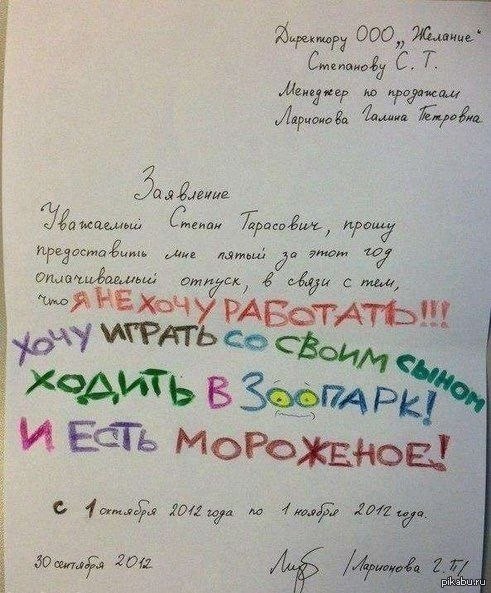 Директору ООО „Желание"
Степанову С. Т.
Менеджер по продажам
Ларионова Галина Петровна
Заявление
Уважаемый Степан Тарасович, прошу
предоставить мне пятый за этот год
оплачиваемый отпуск, в связи с тем,
что Я НЕ ХОЧУ РАБОТАТЬ!!!
ХОЧУ ИГРАТЬ СО СВОИМ СЫНОМ
ХОДИТЬ В ЗООПАРК!
И ЕСТЬ МОРОЖЕНОЕ!
с 1 октября 2012 года по 1 ноября 2012 года.
30 сентября 2012 /Ларионова Г. П/
pikabu.ru